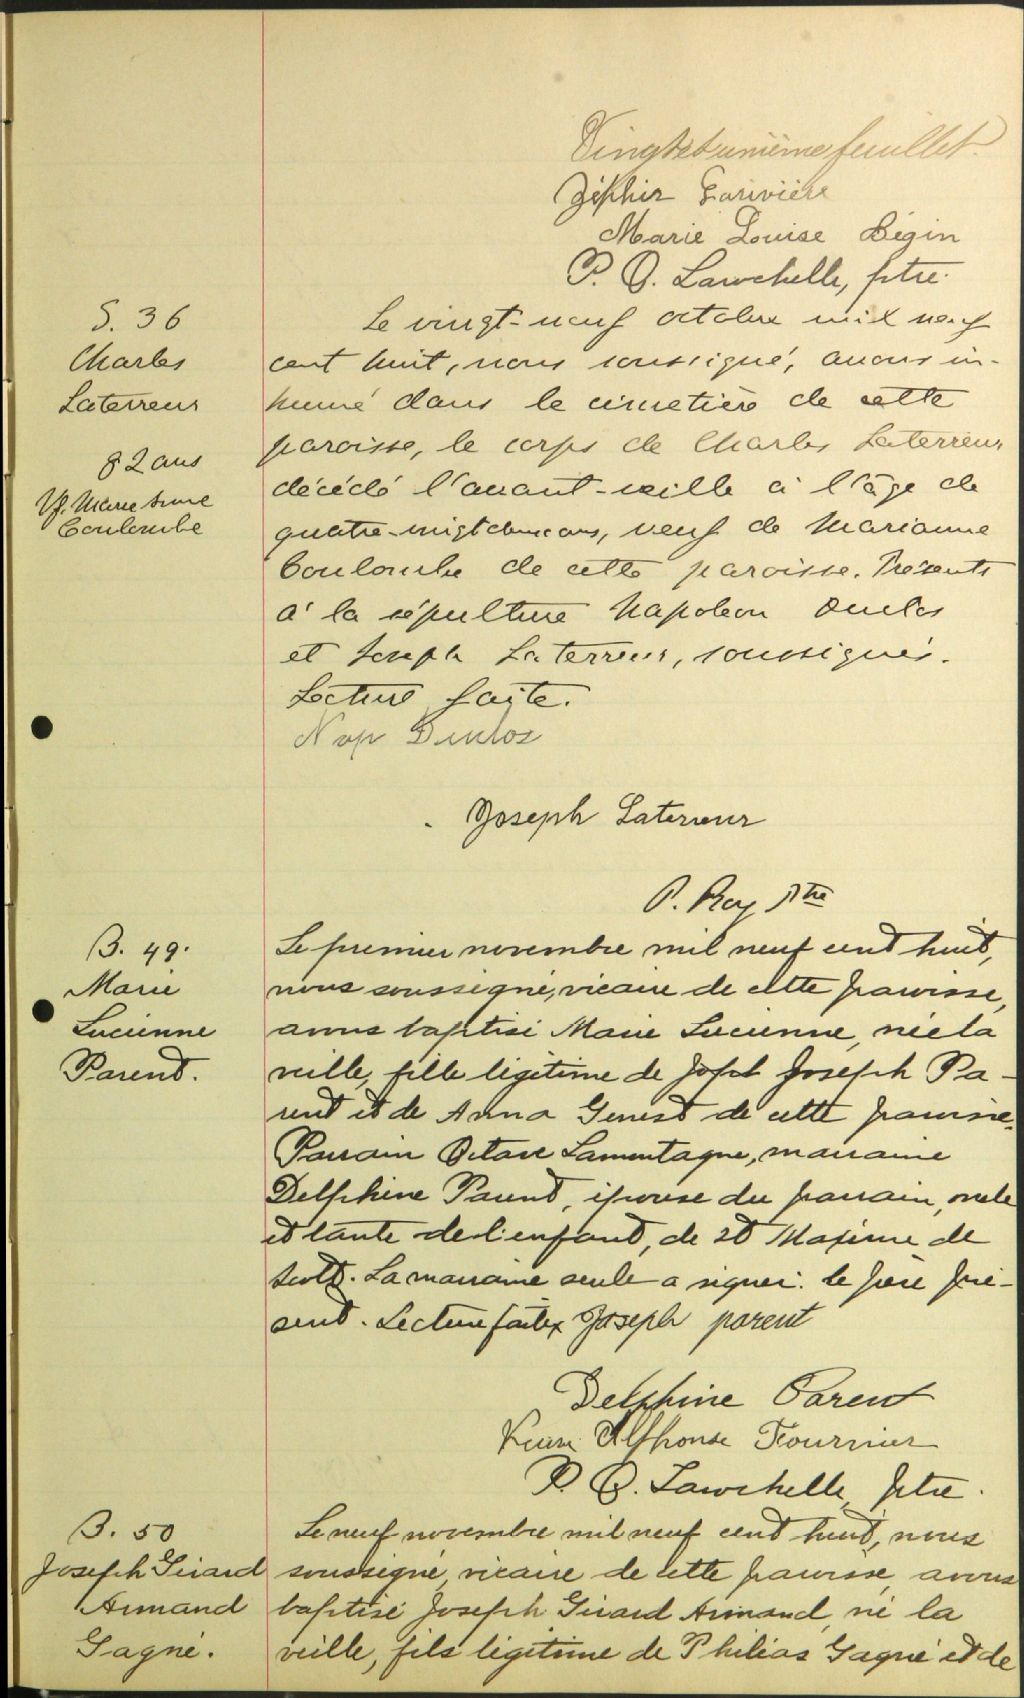 Vingt et unième feuillet.
Zéphir Larivière
Marie Louise Bégin
P. O. Larochelle, ptre.
S. 36
Charles
Laterreur
82 ans
Vf. Marie Anne
Coulombe
Le vingt-neuf octobre mil neuf
cent huit, nous soussigné, avons in-
humé dans le cimetière de cette
paroisse, le corps de Charles Laterreur
décédé l'avant-veille à l'âge de
quatre-vingt deux ans, veuf de Marianne
Coulombe de cette paroisse. Présents
à la sépulture Napoleon Duclos
et Joseph Laterreur, soussignés.
Lecture faite.
Nap Duclos
Joseph Laterreur
P. Roy Ptre
B. 49.
Marie
Lucienne
Parent.
Le premier novembre mil neuf cent huit,
nous soussigné, vicaire de cette paroisse,
avons baptisé Marie Lucienne, née la
veille, fille légitime de Joseph Pa-
rent et de Anna Genest de cette paroisse.
Parrain Octave Lamontagne, marraine
Delphine Parent, épouse du parrain, oncle
et tante de l'enfant, de St Maxime de
Scott. La marraine seule a signé. le père pré-
sent. Lecture faite. Joseph parent
Delphine Parent
Alphonse Fournier
P. O. Larochelle, ptre.
B. 50
Joseph Girard
Armand
Gagné.
Le neuf novembre mil neuf cent huit, nous
soussigné, vicaire de cette paroisse, avons
baptisé Joseph Girard Armand, né la
veille, fils légitime de Philias Gagné et de